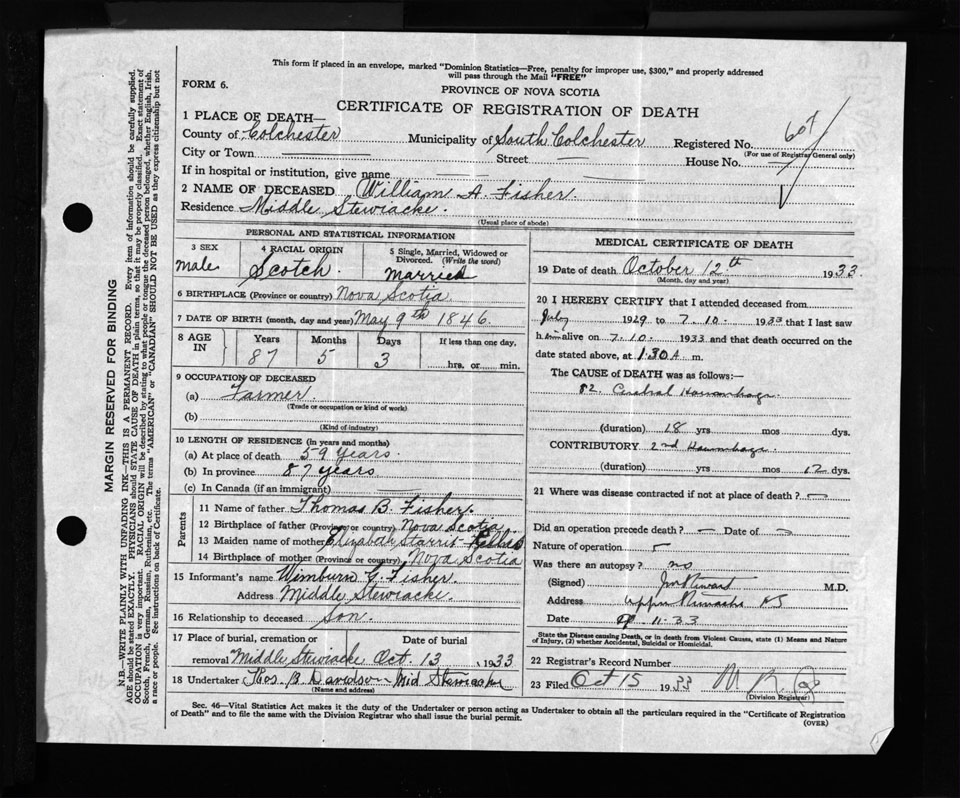 This form if placed in an envelope, marked "Dominion Statistics—Free, penalty for improper use, $300," and properly addressed
will pass through the Mail "FREE"
FORM 6.
PROVINCE OF NOVA SCOTIA
CERTIFICATE OF REGISTRATION OF DEATH
1 PLACE OF DEATH—
County of Colchester Municipality of South Colchester Registered No.
(For use of Registrar General only)
City or Town — Street — House No. —
If in hospital or institution, give name — —
2 NAME OF DECEASED William A. Fisher.
Residence Middle Stewiacke.
(Usual place of abode)
PERSONAL AND STATISTICAL INFORMATION
3 SEX 4 RACIAL ORIGIN 5 Single, Married, Widowed or Divorced. (Write the word)
Male Scotch. Married
6 BIRTHPLACE (Province or country) Nova Scotia
7 DATE OF BIRTH (month, day and year) May 9th 1846.
8 AGE IN Years Months Days If less than one day.
87 5 3 hrs. or min.
9 OCCUPATION OF DECEASED
(a) Farmer.
(Trade or occupation or kind of work)
(b)
(Kind of industry)
10 LENGTH OF RESIDENCE (in years and months)
(a) At place of death 59 years.
(b) In province 87 years
(c) In Canada (if an immigrant)
Parents
11 Name of father Thomas B. Fisher.
12 Birthplace of father (Province or country) Nova Scotia
13 Maiden name of mother Elizabeth Starrit
14 Birthplace of mother (Province or country) Nova Scotia
15 Informant's name Wimburn G. Fisher.
Address Middle Stewiacke.
16 Relationship to deceased Son.
17 Place of burial, cremation or Date of burial
removal Middle Stewiacke Oct. 13 1933
18 Undertaker Thos. B. Davidson Mid Stewiacke
(Name and address)
MEDICAL CERTIFICATE OF DEATH
19 Date of death October 12th 1933
(Month, day and year)
20 I HEREBY CERTIFY that I attended deceased from
July 1929 to 7.10. 1933 that I last saw
him alive on 7.10. 1933 and that death occurred on the
date stated above, at 1.30 A m.
The CAUSE of DEATH was as follows:—
82. Cerebral Haemorrhage
(duration) 18 yrs mos dys.
CONTRIBUTORY 2nd Haemorrhage
(duration) yrs mos 12 dys.
21 Where was disease contracted if not at place of death? —
Did an operation precede death? — Date of —
Nature of operation
Was there an autopsy? no
(Signed) M.D.
Address Upper Stewiacke NS
Date 11.33
State the Disease causing Death, or in death from Violent Causes, state (1) Means and Nature
of Injury, (2) whether Accidental, Suicidal or Homicidal.
22 Registrar's Record Number
23 Filed Oct 15 1933
(Division Registrar)
Sec. 46—Vital Statistics Act makes it the duty of the Undertaker or person acting as Undertaker to obtain all the particulars required in the "Certificate of Registration
of Death" and to file the same with the Division Registrar who shall issue the burial permit.
(OVER)
MARGIN RESERVED FOR BINDING
N.B.—WRITE PLAINLY WITH UNFADING INK—THIS IS A PERMANENT RECORD. Every item of information should be carefully supplied.
AGE should be stated EXACTLY. PHYSICIANS should STATE CAUSE OF DEATH in plain terms, so that it may be properly classified. Exact statement of
OCCUPATION is very important. RACIAL ORIGIN will be described by stating to what people or tongue the deceased person belonged, whether English, Irish,
Scotch, French, German, Russian, Ruthenian, etc. The terms "AMERICAN" or "CANADIAN" SHOULD NOT BE USED as they express citizenship but not
a race or people. See instructions on back of Certificate.